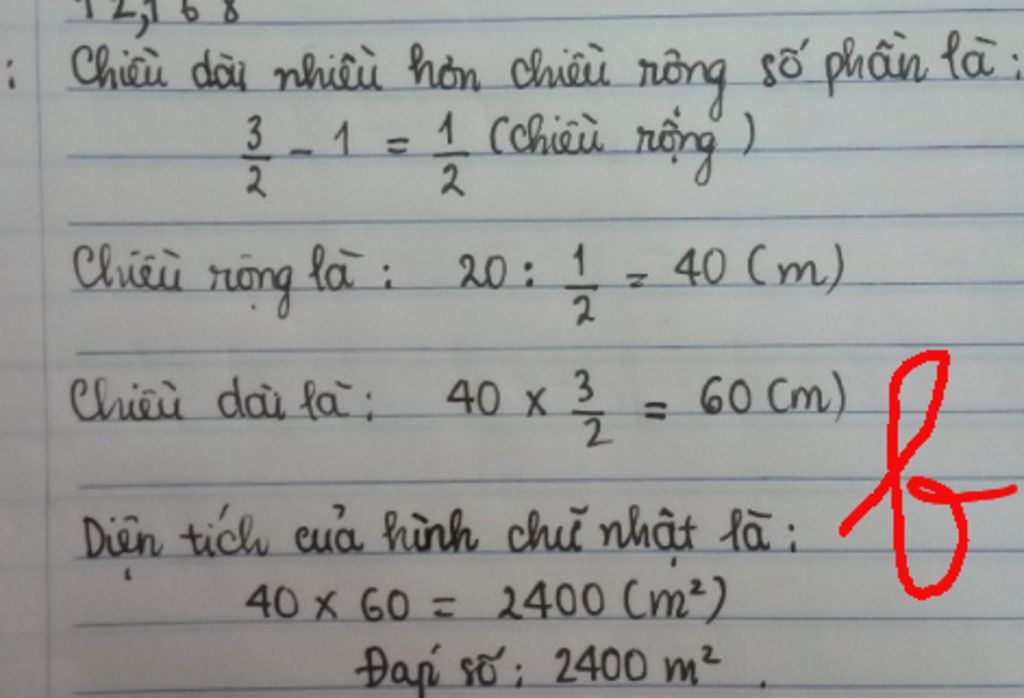 12,168
: Chiều dài nhiều hơn chiều rộng số phần là:
3/2 - 1 = 1/2 (chiều rộng)
Chiều rộng là: 20 : 1/2 = 40 (m)
Chiều dài là: 40 x 3/2 = 60 (m)
Diện tích của hình chữ nhật là:
40 x 60 = 2400 (m²)
Đáp số: 2400 m².